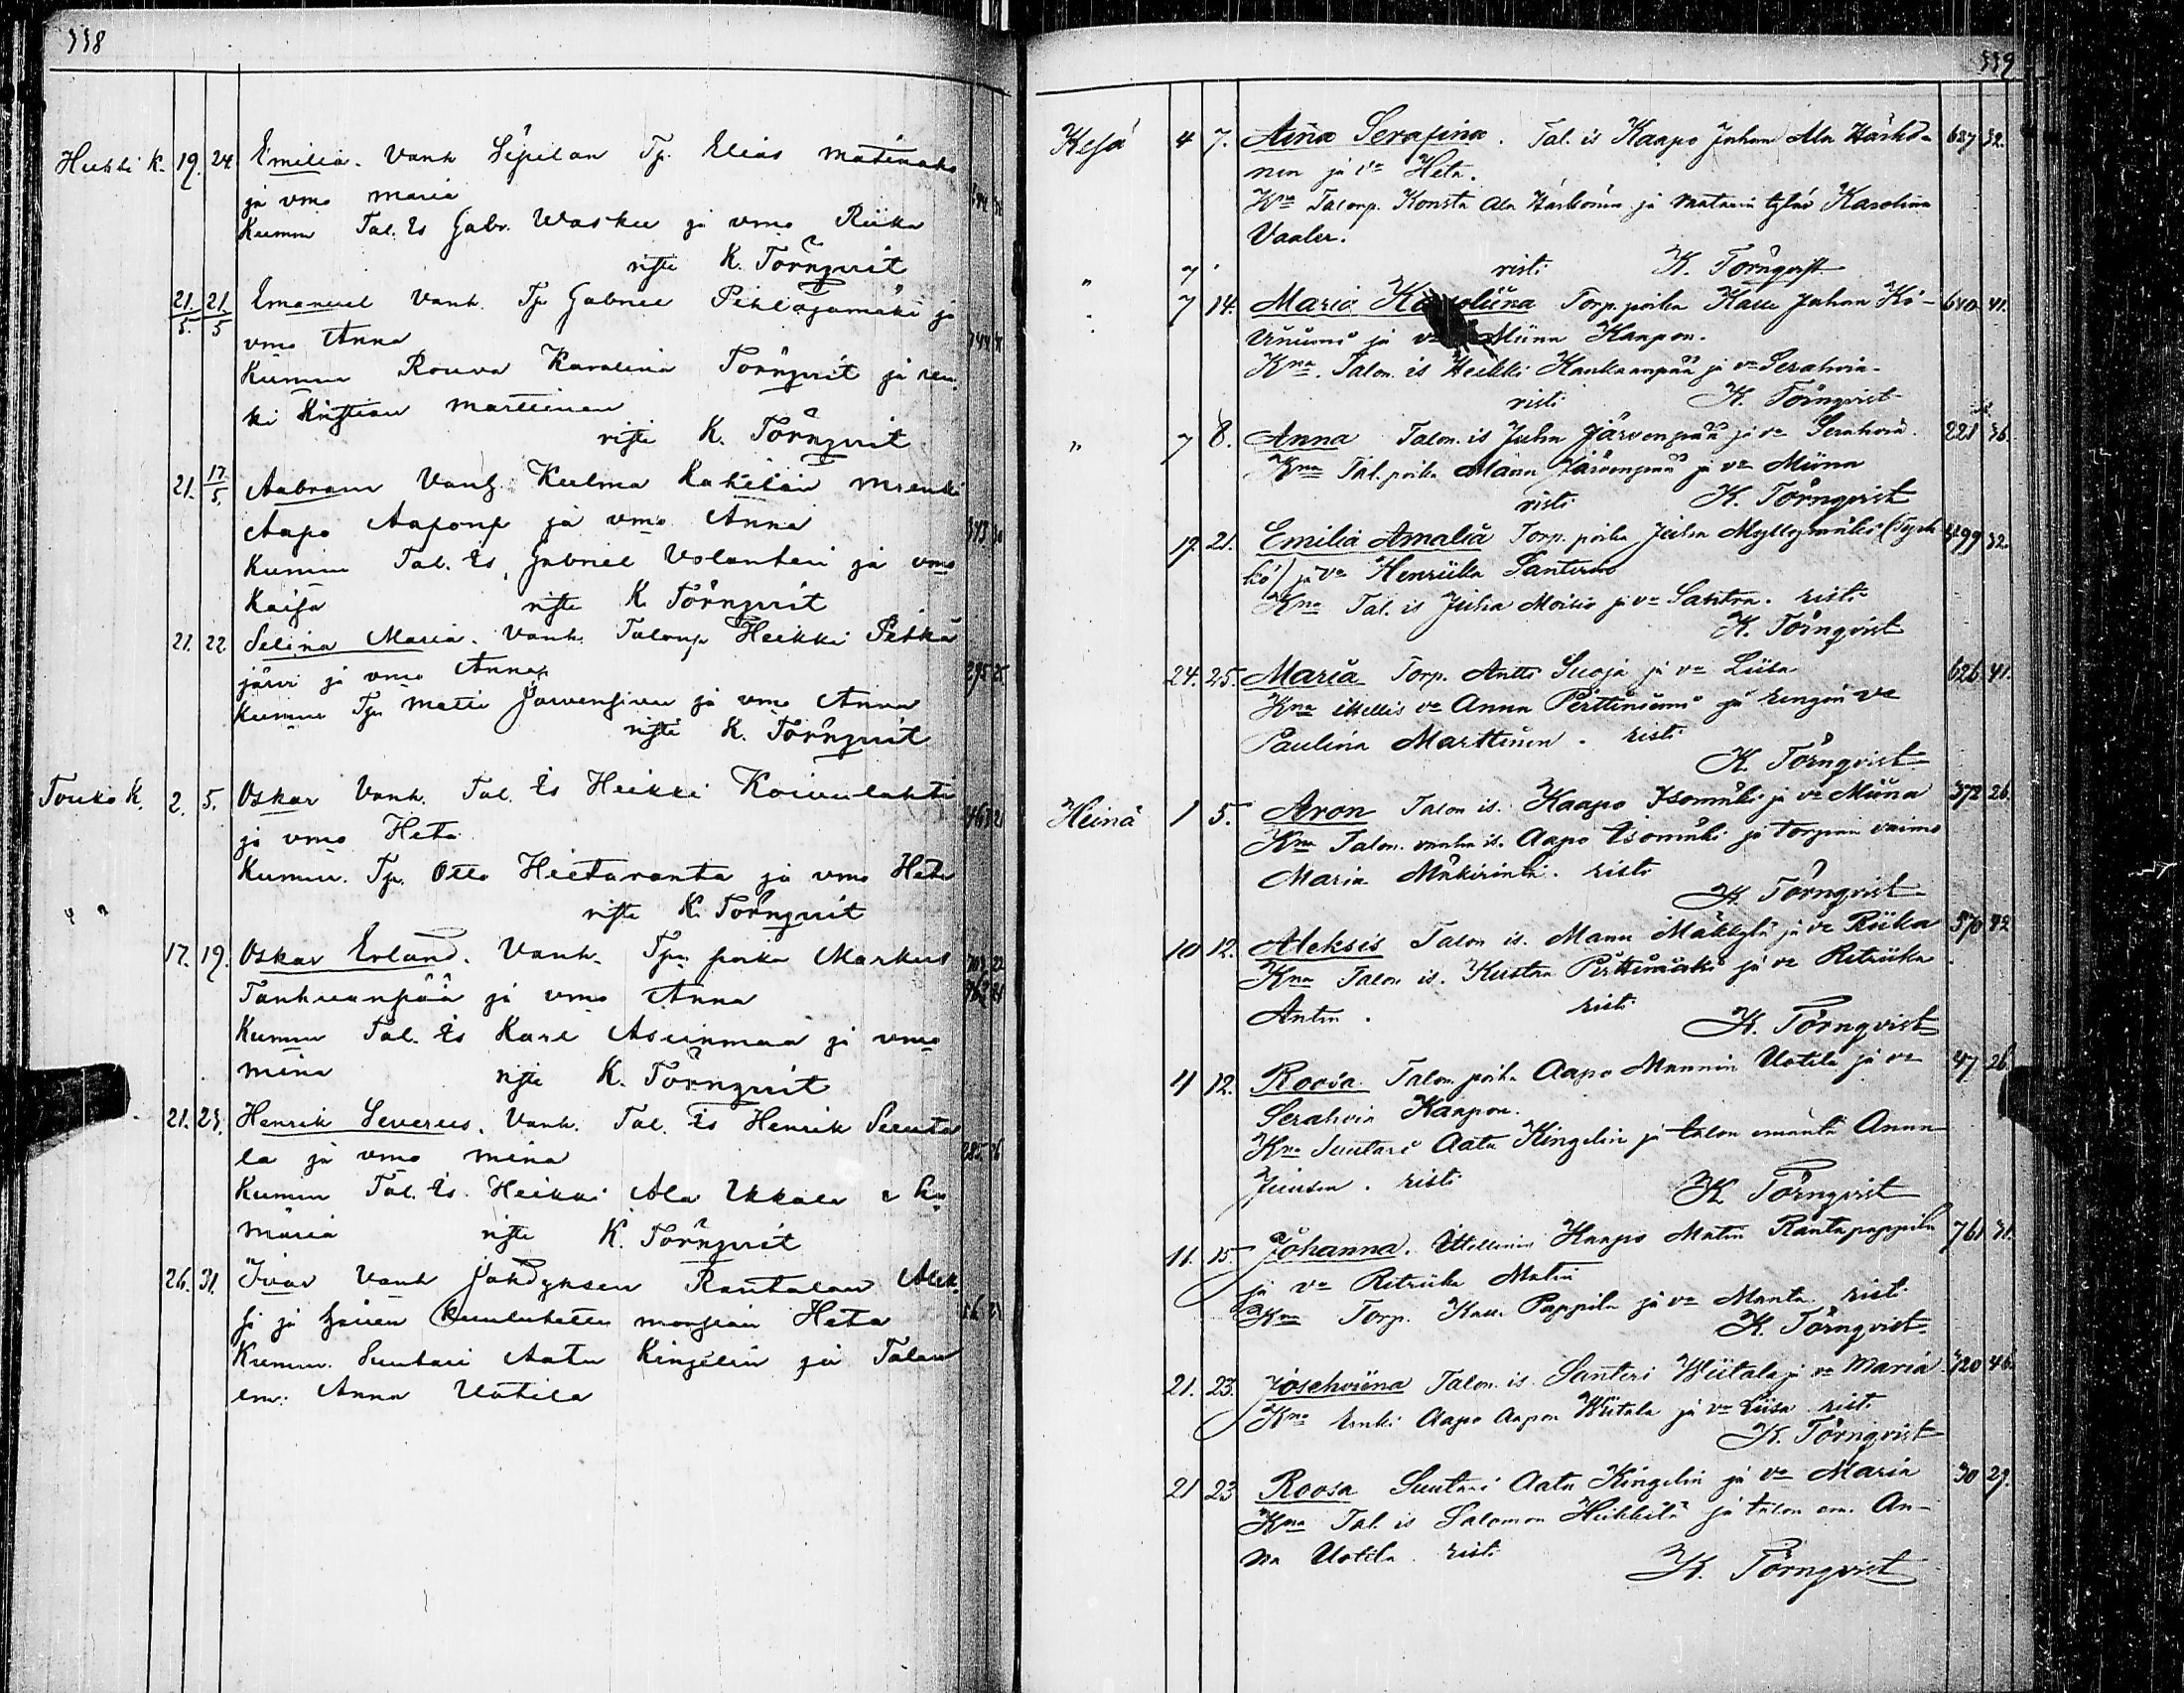 338
Huhti K. 19. 24. Emilia. Vanh Sépilan Tp. Elias
ja vmo Maria
Kummi Tal. Is Gabr. Wasku ja vmo Riika
risti K. Törnqvist
21./5. 21/5 Emanuel Vanh. Tp Gabriel Pihlajamäki ja
vmo Anna
Kummi Rouva Karolina Törnqvist ja ren
ki Kristian Marttinen
risti K. Törnqvist
21. 17./5. Aabram Vanh. Kulma Rahilan
Aapo Aaponp ja vmo Anna 373 30
Kummi Tal. Is, Gabriel Volanteri ja vmo
Kaisa risti K Törnqvist
21. 22 Selina Maria. Vanh. Talonp Heikki Petkä
järvi ja vmo Anna 295 25
Kummi Tp. Matti Järvensivu ja vmo Anna
risti K. Törnqvist
Touko K. 2. 5. Oskar Vanh. Tal. Is Heikki Koivulahti
ja vmo Heta
Kummi. Tp. Otto Hietaranta ja vmo Heta
risti K. Törnqvist
17. 19. Oskar Erland. Vanh. Tpn poika Markus
Tanhuanpää ja vmo Anna
Kummi Tal. Is Karl Aseinmaa ja vmo
Mina risti K. Törnqvist
21. 23. Henrik Severus. Vanh. Tal. Is Henrik Seuuta
la ja vmo Mina 285 26
Kummi Tal. Is. Heikki Ala Ikkala
Maria risti K. Törnqvist
26. 31. Ivar Vanh Rantalan Alek
si ja hänen kuuluttettu morsian Heta
Kummi. Suutari Aatu Kingelin ja Talon
em. Anna Uotila
339
Kesä 4 7. Aina Serafina. Tal. is Kaapo Juhan Ala Härkö- 687 32.
nen ja va Heta.
Kna Talonp. Konsta Ala Härkönen ja Matarin tytär Karolina
Vaaler.
" 7 risti K. Törnqvist
7 14. Maria Karoliina Torp. poika Kalle Juhan Kö- 680 41.
ja va Miina Kaapon.
Kna. Talon. is Heikki Kankaanpää ja va Serahvia.
risti K. Törnqvist
" 7 8. Anna Talon. is Juha Järvenpää ja va Serahvia. 221 36.
Kna Tal. poika Manu Järvenpää ja va Miina
risti K. Törnqvist
17. 21. Emilia Amalia Torp. poika Juha Myllymäki (Töysä 499 32.
kö) ja va Henriika Santerin
Kna Tal. is Juha Moisio ja va Santra. risti
K. Törnqvist
24. 25. Maria Torp. Antti Suoja ja va Liisa 626 41.
Kna itsellis va Anna Perttinämi ja rengin va
Paulina Marttinen. risti
K. Törnqvist
Heinä 1 5. Aron Talon is. Kaapo Isomäki ja va Miina 372 26.
Kna Talon. vanha is. Aapo Isomäki ja torpan vaimo
Maria Mäkirinta. risti
K. Törnqvist
10 12. Aleksis Talon is. Manu Mäkkylä ja va Riika 570 42
Kna Talon is. Kustaa Perttimäki ja va Retriika
Antin. risti
K. Törnqvist
4 12. Roosa. Talon poika Aapo Mannin Uotila ja va 47 26
Serahvia Kaapon.
Kna Suutari Aatu Kingelin ja talon emäntä Anna
Juusen. risti
K Törnqvist
11. 15 Johanna. Itsellinen Kaapo Matin Rantapappila 761 31.
ja va Retriika Matin
Kna Torp. Kalle Pappila ja va Manta risti
K. Törnqvist.
21. 23. Josehviina Talon. is Santeri Wiitala ja va Maria 720 46.
Kna Renki Aapo Aapon Wiitala ja va Liisa risti
K. Törnqvist
21 23 Roosa Suutari Aatu Kingelin ja va Maria 30 29.
Kna Tal. is Salomon Heikkilä ja talon em. An-
na Uotila risti
K. Törnqvist